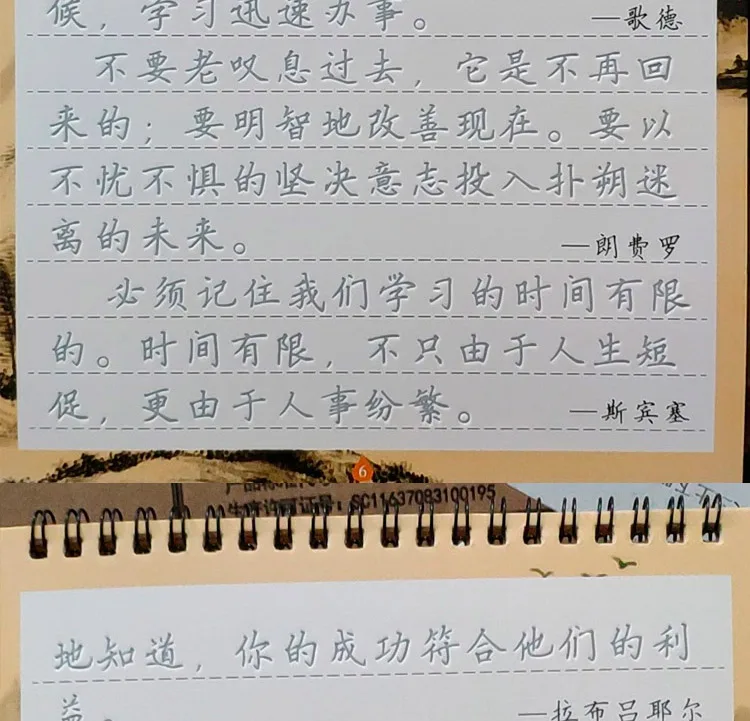 候，学习迅速办事。 —歌德
不要老叹息过去，它是不再回
来的；要明智地改善现在。要以
不忧不惧的坚决意志投入扑朔迷
离的未来。 —朗费罗
必须记住我们学习的时间有限
的。时间有限，不只由于人生短
促，更由于人事纷繁。 —斯宾塞
6
生许许可证号：SC11637083100195
地知道，你的成功符合他们的利
益。 —拉布吕耶尔